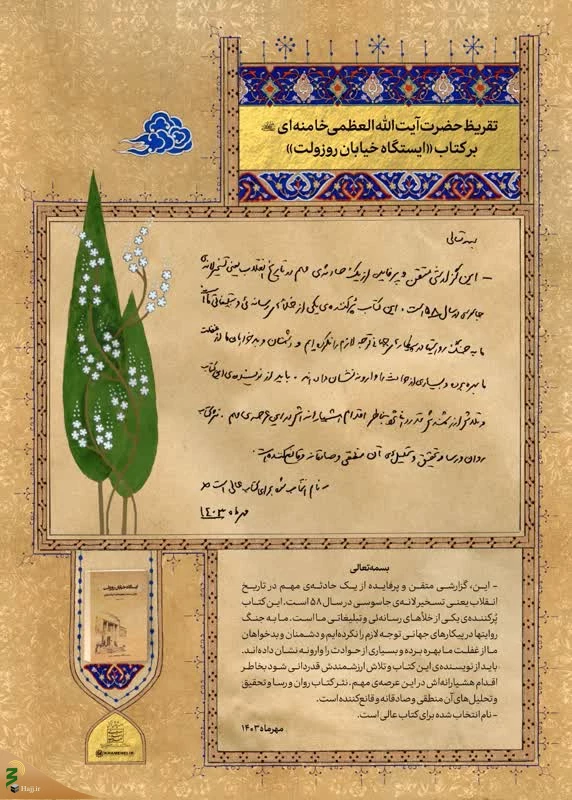 تقریظ حضرت آیت‌الله‌العظمی خامنه‌ای
بر کتاب «ایستگاه خیابان روزولت»
بسمه‌تعالی
- این گزارشی متقن و پرفایده از یک حادثه‌ی مهم در تاریخ انقلاب یعنی تسخیر لانه‌ی
جاسوسی در سال ۵۸ است. این کتاب پُرکننده‌ی یکی از خلأهای رسانه‌ئی و تبلیغاتی ما است.
ما به جنگ روایتها در پیکارهای جهانی توجه لازم را نکرده‌ایم و دشمنان و بدخواهان ما از غفلت
ما بهره برده و بسیاری از حوادث را وارونه نشان داده‌اند. باید از نویسنده‌ی این کتاب
و تلاش ارزشمندش قدردانی شود بخاطر اقدام هشیارانه‌اش در این عرصه‌ی مهم. نثر کتاب
روان و رسا و تحقیق و تحلیل‌های آن منطقی و صادقانه و قانع‌کننده است.
- نام انتخاب شده برای کتاب عالی است
مهرماه ۱۴۰۳
بسمه‌تعالی
- این، گزارشی متقن و پرفایده از یک حادثه‌ی مهم در تاریخ
انقلاب یعنی تسخیر لانه‌ی جاسوسی در سال ۵۸ است. این کتاب
پُرکننده‌ی یکی از خلأهای رسانه‌ئی و تبلیغاتی ما است. ما به جنگ
روایتها در پیکارهای جهانی توجه لازم را نکرده‌ایم و دشمنان و بدخواهان
ما از غفلت ما بهره برده و بسیاری از حوادث را وارونه نشان داده‌اند.
باید از نویسنده‌ی این کتاب و تلاش ارزشمندش قدردانی شود بخاطر
اقدام هشیارانه‌اش در این عرصه‌ی مهم. نثر کتاب روان و رسا و تحقیق
و تحلیل‌های آن منطقی و صادقانه و قانع‌کننده است.
- نام انتخاب شده برای کتاب عالی است.
مهرماه ۱۴۰۳
ایستگاه خیابان روزولت
KHAMENEI.IR
Hajj.ir